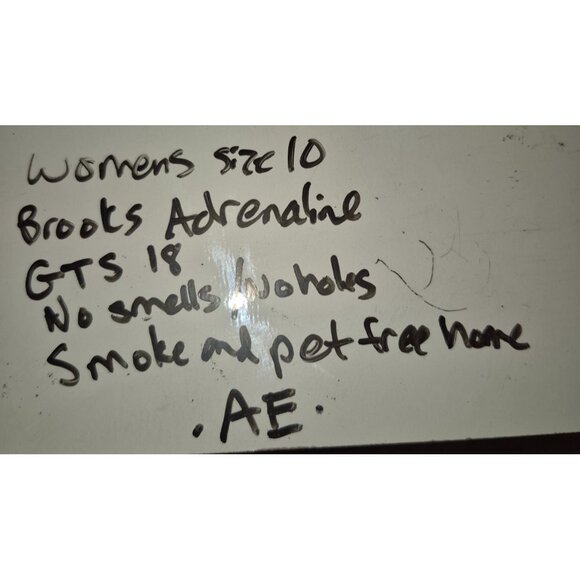 Womens size 10
Brooks Adrenaline
GTS 18
No smells/No holes
Smoke and pet free home
.AE.